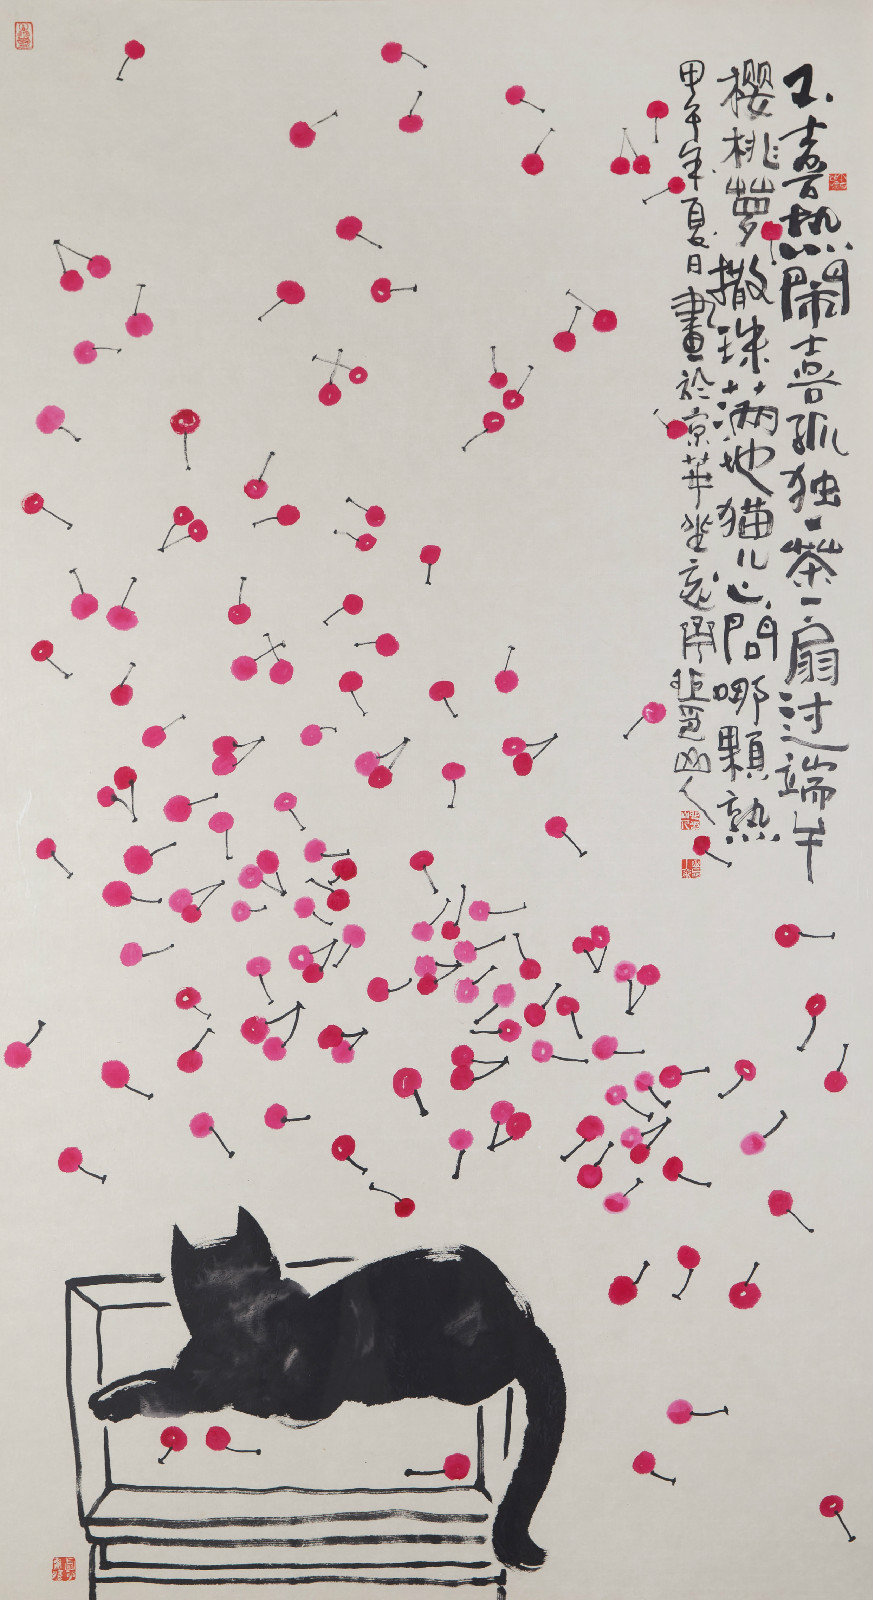 不喜热闹喜孤独一茶一扇过端午
樱桃夢撒珠满地猫儿心问哪顆熟
甲午年夏日畫於京华坐忘斋山人